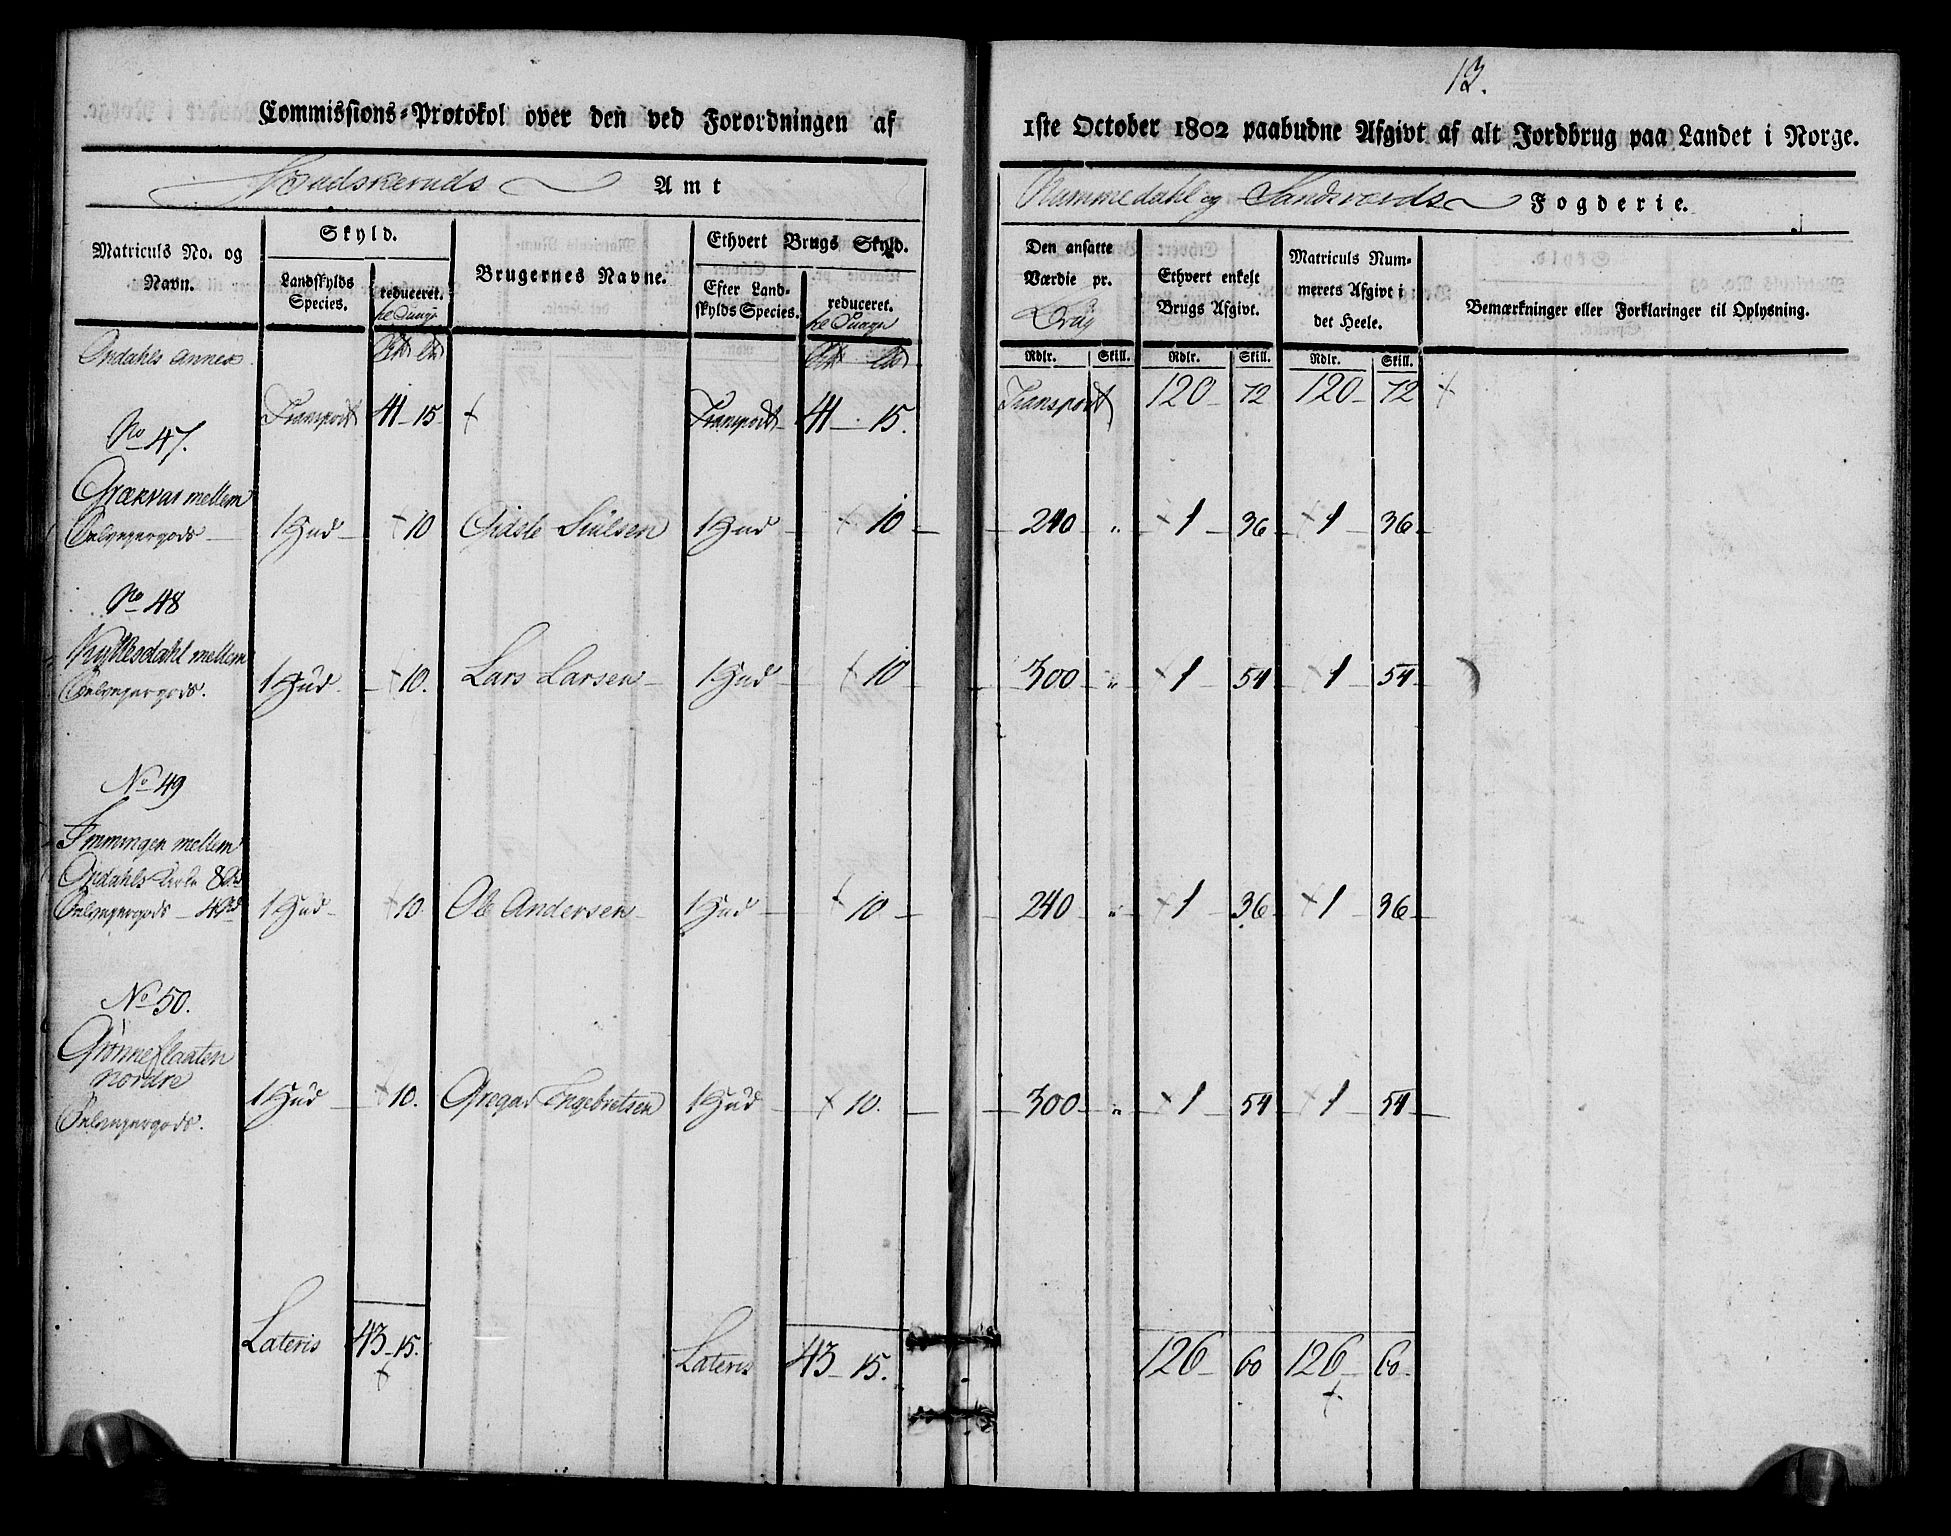 13.
Commissions-Protokol over den ved Forordningen af
1ste October 1802 paabudne Afgivt af alt Jordbrug paa Landet i Norge.
Budskeruds Amt
Nummedahl og Sandsværds Fogderie.
Matriculs No. og Navn.
Skyld.
Landskylds Species.
reduceret.
Brugernes Navne.
Ethvert Brugs Skyld.
Efter Landskylds Species.
reduceret.
Den ansatte Værdie pr.
Brug
Ethvert enkelt Brugs Afgivt.
Matriculs Nummerets Afgivt i det Heele.
Bemærkninger eller Forklaringer til Oplysning.
Rdlr. Skill. Rdlr. Skill. Rdlr. Skill.
Opdahls Annex
Transport 41 - 15 Transport 41 - 15. Transport 120 - 72 120 - 72
No 47.
Grækvas mellem
1 Hud - 10 1 Hud 10 - 240 " 1 - 36 - 1 - 36
No 48
mellem
1 Hud - 10. Lars Larsen 1 Hud 10 300 " 1 54 1 54
No 49
mellem
Opdahls
1 Hud - 10. Ole Andersen 1 Hud 10 - 240 " 1 36 1 36
No 50.
Grønneflaaten
nordre
1 Hud - 10. Gregar Engebretsen 1 Hud 10. 300 " 1 54 1 54
Lateris 43 - 15. Lateris 43 - 15. 126 - 60 126 - 60